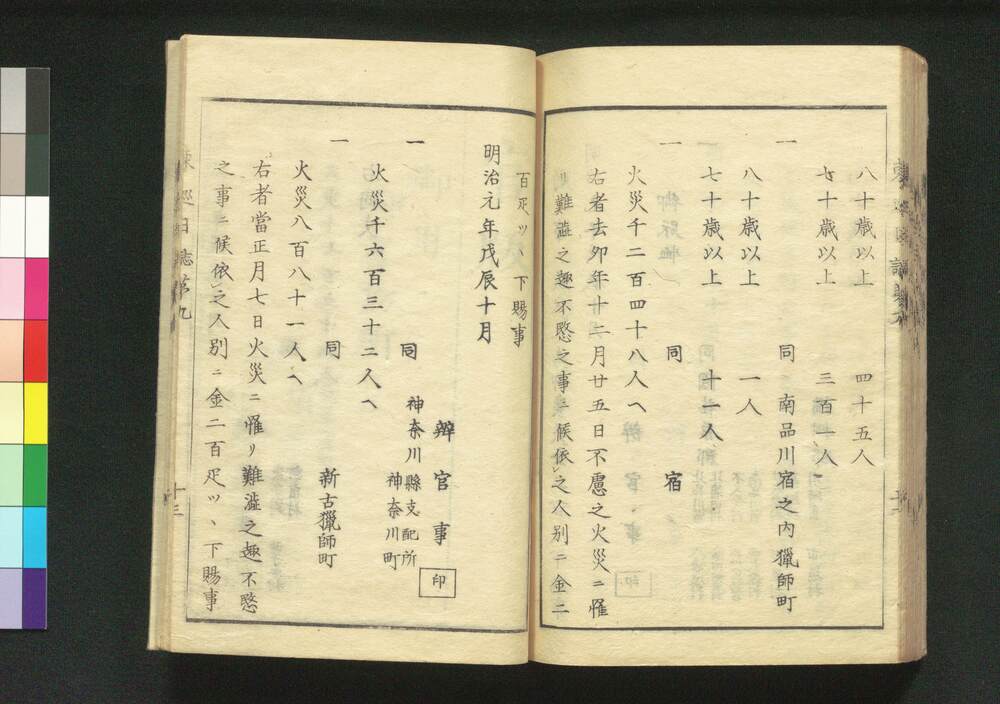 八十歳以上　四十五人
七十歳以上　三百一人
一　同　南品川宿之内獵師町
八十歳以上　一人
七十歳以上　十一人
一　同　宿
火災千二百四十八人ヘ
右者去卯年十二月廿五日不慮之火災ニ罹
リ難澁之趣不愍之事ニ候依之人別ニ金二
百疋ツヽ下賜事
明治元年戊辰十月
辨官事　印
一　同　神奈川縣支配所
神奈川町
火災千六百三十二人ヘ
一　同　新古獵師町
火災八百八十一人ヘ
右者當正月七日火災ニ罹リ難澁之趣不愍
之事ニ候依之人別ニ金二百疋ツヽ下賜事
東巡日誌第九
十三